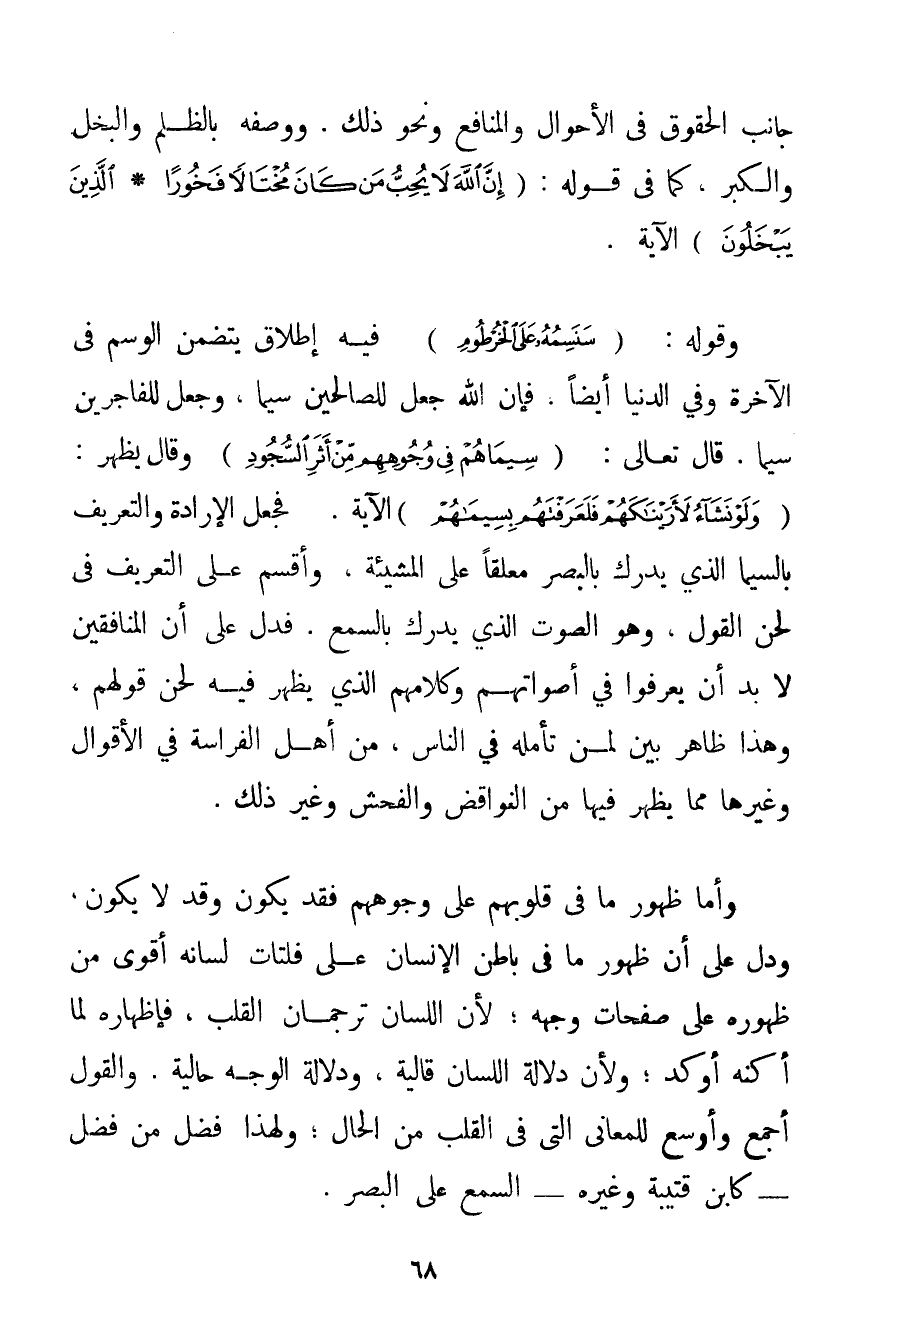 جانب الحقوق فى الأحوال والمنافع ونحو ذلك . ووصفه بالظلم والبخل
والكبر ، كما فى قوله : ( إِنَّ ٱللَّهَ لَا يُحِبُّ مَن كَانَ مُخْتَالًا فَخُورًا * ٱلَّذِينَ
يَبْخَلُونَ ) الآية .
وقوله : ( سَنَسِمُهُۥ عَلَى ٱلْخُرْطُومِ ) فيه إطلاق يتضمن الوسم فى
الآخرة وفي الدنيا أيضاً . فإن الله جعل للصالحين سيما ، وجعل للفاجرين
سيما . قال تعالى : ( سِيمَاهُمْ فِى وُجُوهِهِم مِّنْ أَثَرِ ٱلسُّجُودِ ) وقال يظهر :
( وَلَوْ نَشَآءُ لَأَرَيْنَٰكَهُمْ فَلَعَرَفْتَهُم بِسِيمَٰهُمْ ) الآية . فجعل الإرادة والتعريف
بالسيما الذي يدرك بالبصر معلقاً على المشيئة ، وأقسم على التعريف فى
لحن القول ، وهو الصوت الذي يدرك بالسمع . فدل على أن المنافقين
لا بد أن يعرفوا في أصواتهم وكلامهم الذي يظهر فيه لحن قولهم ،
وهذا ظاهر بين لمن تأمله في الناس ، من أهل الفراسة في الأقوال
وغيرها مما يظهر فيها من النواقض والفحش وغير ذلك .
وأما ظهور ما فى قلوبهم على وجوههم فقد يكون وقد لا يكون .
ودل على أن ظهور ما فى باطن الإنسان على فلتات لسانه أقوى من
ظهوره على صفحات وجهه ؛ لأن اللسان ترجمان القلب ، فإظهاره لما
أكنه أوكد ؛ ولأن دلالة اللسان قالية ، ودلالة الوجه حالية . والقول
أجمع وأوسع للمعانى التى فى القلب من الحال ؛ ولهذا فضل من فضل
— كابن قتيبة وغيره — السمع على البصر .
٦٨